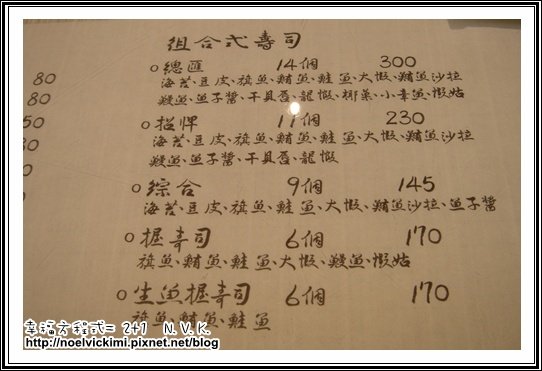 組合式壽司
80
80
50
80
0
○總匯 14個 300
海苔、豆皮、旗魚、鮪魚、鮭魚、大蝦、鮪魚沙拉
鰻魚、魚子醬、干貝唇、龍蝦、椰菜、小章魚、蝦姑
○招牌 11個 230
海苔、豆皮、旗魚、鮪魚、鮭魚、大蝦、鮪魚沙拉
鰻魚、魚子醬、干貝唇、龍蝦
○綜合 9個 145
海苔、豆皮、旗魚、鮭魚、大蝦、鮪魚沙拉、魚子醬
○握壽司 6個 170
旗魚、鮪魚、鮭魚、大蝦、鰻魚、蝦姑
○生魚握壽司 6個 170
旗魚、鮪魚、鮭魚
幸福方程式= 2+1 N.V.K.
http://noelvickimi.pixnet.net/blog